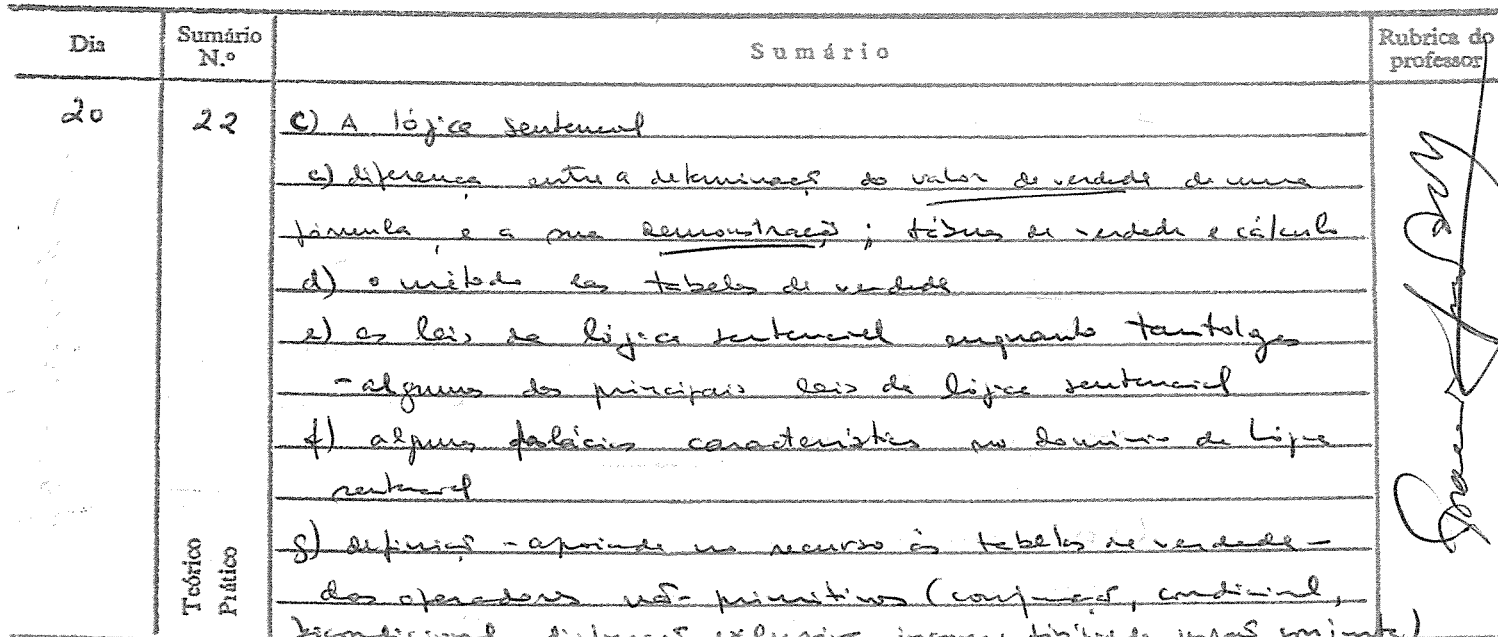 Dia
Sumário N.º
Sumário
Rubrica do professor
20
22
C) A lógica sentencial
c) diferença entre a determinação do valor de verdade de uma
fórmula e a sua demonstração; tábuas de verdade e cálculo
d) o método das tabelas de verdade
e) as leis da lógica sentencial enquanto tautologias
- algumas das principais leis da lógica sentencial
f) algumas falácias características no domínio da lógica
sentencial
g) definição - apoiada no recurso às tabelas de verdade -
dos operadores não-primitivos (conjunção, condicional,
bicondicional, disjunção exclusiva,
Teórico
Prático